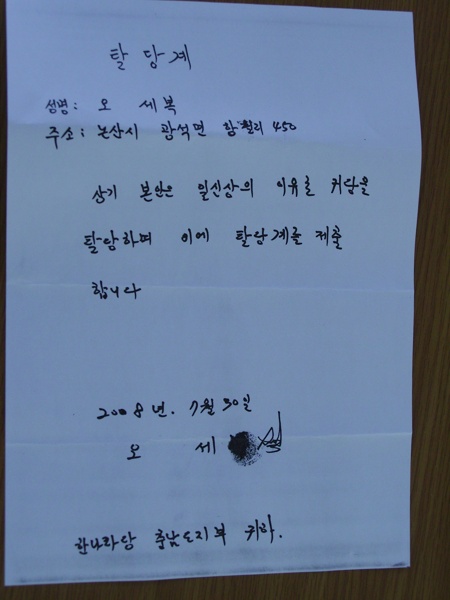 탈당계
성명: 오 세복
주소: 논산시 광석면 항월리 450
상기 본인은 일신상의 이유로 귀당을
탈당하며 이에 탈당계를 제출
합니다
2008년. 7월 30일
오 세
한나라당 충남도지부 귀하.